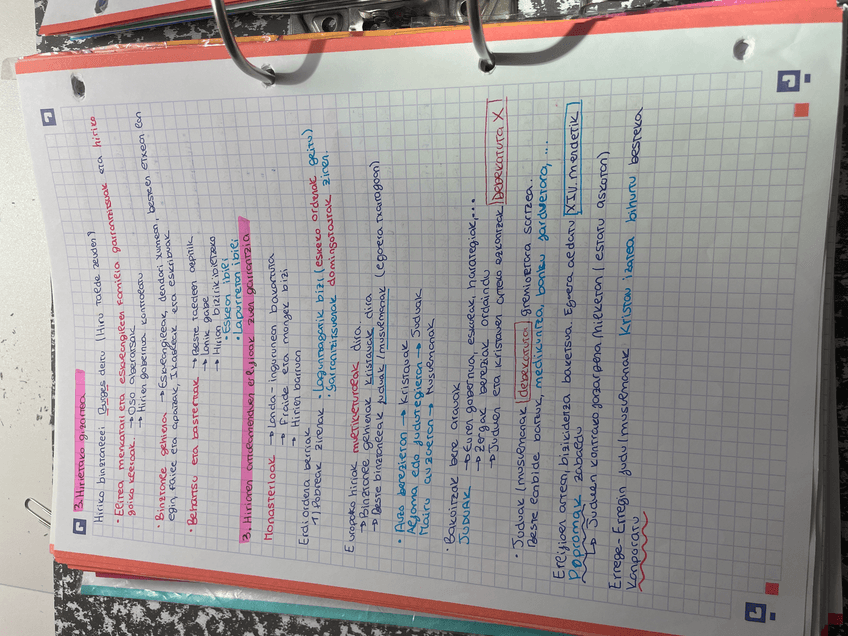 3. Hirietako gizartea
Hiriko biztanleei Burges deitu (Hiru talde zeuden)
· Elitea merkatari eta eskulangileen familia garrantzitsuak eta hiriko
goiko kleroak. → Oso aberatsak
→ Hirien gobernua kontrolatu
· Biztanle gehienak → Eskulangileak, dendari xumeak, besteen etxean lan
egin, fraile eta apaizak, Ikasleak eta eskribauak
· Behartsu eta baztertuak → Beste taldeen azpitik
→ Lanik gabe
→ Hirian bizirik irteteko
· Eskean ibili
· Lapurretan ibili
3. Hirien antolamenduan erlijioak zuen garrantzia
Monasterioak → Landa-ingurunean bakartuta
→ Fraide eta mongek bizi
→ Hirien barruan
Erdi ordena berriak
1) Pobreak zirenak · Laguntzagatik bizi (eskeko ordenak deitu)
· Garrantzitsuenak domingotarrak ziren.
Europako hiriak multikulturalak dira
→ Biztanle gehienak kristauak dira
→ Beste biztanleak juduak/musulmanak (egoera txarragoan)
· Auzo berezietan → Kristauak
Aljama edo judutegietan → Juduak
Mairu auzoetan → Musulmanak
· Bakoitzak bere arauak
Juduak → Euren gobernua, eskolak, harategiak,...
→ Zergak bereziak ordaindu
→ Juduen eta kristauen arteko ezkontzak debekatuta X
· Juduak/musulmanak debekatuta gremioetara sartzea.
Beste lanbide batzuk, medikuntza, banku jarduerara, ...
Erlijioen artean, bizikidetza baketsua. Egoera aldatu XIV. mendetik
Pogromak zabaldu
↳ Juduen kontrako jazarpena/hilketan (estatu askotan)
Errege-Erregin judu/musulmanak Kristau izatea bihurtu bestela
kanporatu